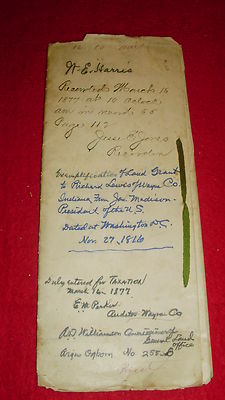 W. E. Harris
Recorded March 16
1877 at 10 oclock
am in record 55
Page 112
Jesse E. Jones
Recorder
Exemplification of Land Grant
to Richard Lewis of Wayne Co.
Indiana from Jas. Madison
President of the U.S.
Dated at Washington D.C.
Nov. 27, 1816
Duly entered for TAXATION
March 16 - 1877
E. M. Parker
Auditor Wayne Co
A.D. Williamson Commissioner of
General Land
Office
Argus Ogborn No. 258